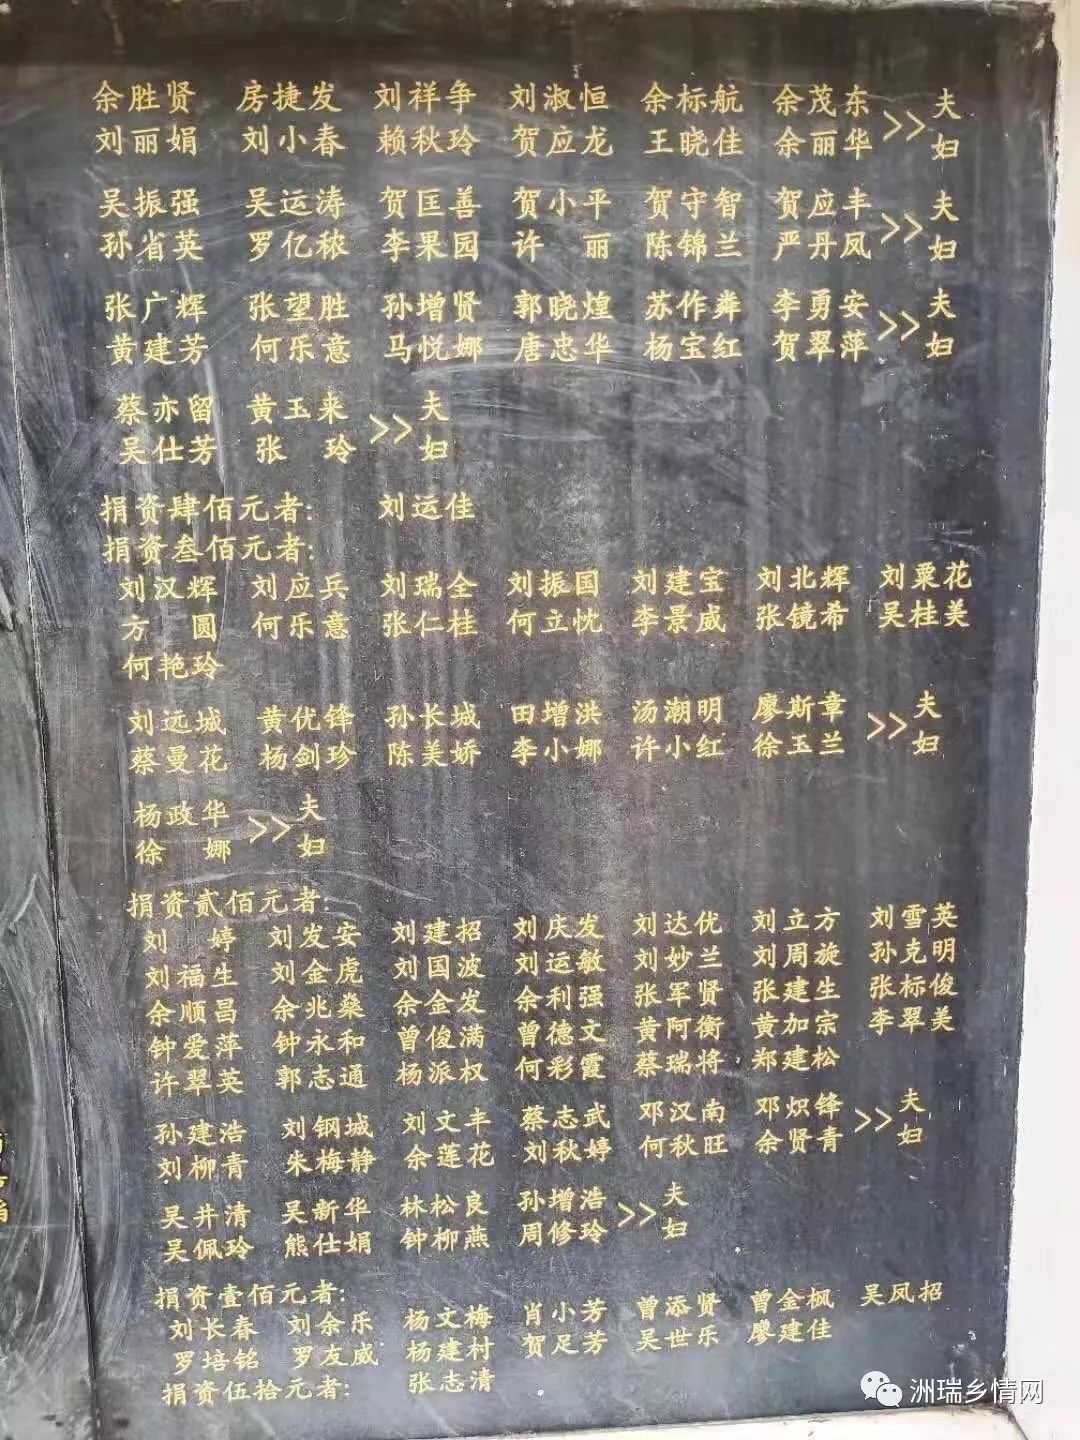 余胜贤 房捷发 刘祥争 刘淑恒 余标航 余茂东 >> 夫
刘丽娟 刘小春 赖秋玲 贺应龙 王晓佳 余丽华 妇
吴振强 吴运涛 贺匡善 贺小平 贺守智 贺应丰 >> 夫
孙省英 罗亿秾 李果园 许丽 陈锦兰 严丹凤 妇
张广辉 张望胜 孙增贤 郭晓煌 苏作粦 李勇安 >> 夫
黄建芳 何乐意 马悦娜 唐忠华 杨宝红 贺翠萍 妇
蔡亦留 黄玉来 >> 夫
吴仕芳 张玲 妇
捐资肆佰元者: 刘运佳
捐资叁佰元者:
刘汉辉 刘应兵 刘瑞全 刘振国 刘建宝 刘北辉 刘粟花
方圆 何乐意 张仁桂 何立忱 李景威 张镜希 吴桂美
何艳玲
刘远城 黄优锋 孙长城 田增洪 汤潮明 廖斯章 >> 夫
蔡曼花 杨剑珍 陈美娇 李小娜 许小红 徐玉兰 妇
杨政华 >> 夫
徐娜 妇
捐资贰佰元者:
刘婷 刘发安 刘建招 刘庆发 刘达优 刘立方 刘雪英
刘福生 刘金虎 刘国波 刘运敏 刘妙兰 刘周旋 孙克明
余顺昌 余兆燊 余金发 余利强 张军贤 张建生 张标俊
钟爱萍 钟永和 曾俊满 曾德文 黄阿衡 黄加宗 李翠美
许翠英 郭志通 杨派权 何彩霞 蔡瑞将 郑建松
孙建浩 刘钢城 刘文丰 蔡志武 邓汉南 邓炽锋 >> 夫
刘柳青 朱梅静 余莲花 刘秋婷 何秋旺 余贤青 妇
吴井清 吴新华 林松良 孙增浩 >> 夫
吴佩玲 熊仕娟 钟柳燕 周修玲 妇
捐资壹佰元者:
刘长春 刘余乐 杨文梅 肖小芳 曾添贤 曾金枫 吴凤招
罗培铭 罗友威 杨建村 贺足芳 吴世乐 廖建佳
捐资伍拾元者: 张志清
洲瑞乡情网